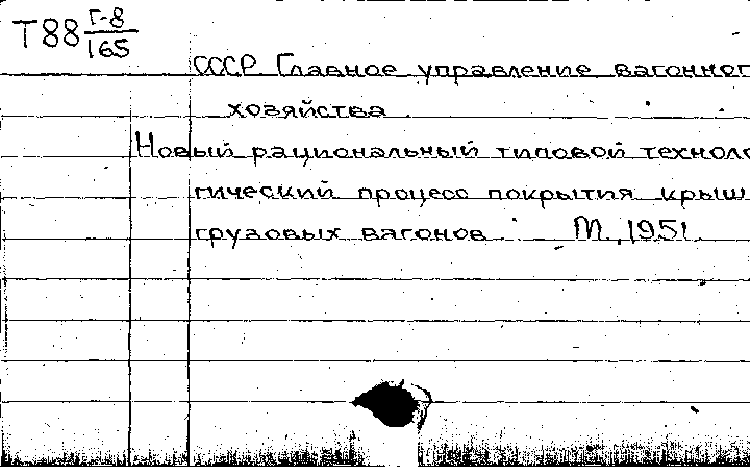 Т88 Г-8
165
СССР Главное управление вагонног
хозяйства
Новый рациональный типовой техноло
гический процесс покрытия крыш
грузовых вагонов. М., 1951.